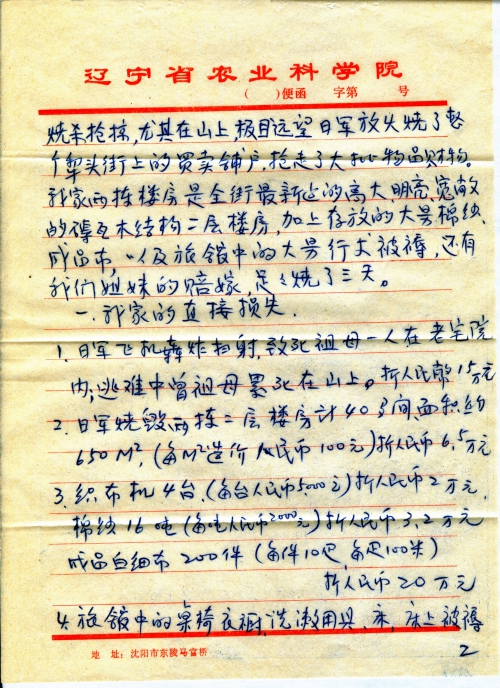 辽宁省农业科学院
(　　)便函　　字第　　号
烧杀抢掠,尤其在山上极目远望日军放火烧了整
个犁头街上的买卖铺户,抢走了大批物品财物。
我家两栋楼房是全街最新式的高大明亮、宽敞
的砖瓦木结构二层楼房,加上存放的大号棉纱,
成品布,以及旅馆中的大号行李被褥,还有
我们姐妹的陪嫁,足足烧了三天。
一、我家的直接损失.
1. 日军飞机轰炸扫射,致死祖母一人在老宅院
内;逃难中曾祖母累死在山上。折人民币15万元
2. 日军烧毁两栋二层楼房计40多间,面积约
650M²,(每M²造价人民币100元)折人民币6.5万元
3. 织布机4台,(每台人民币5000元)折人民币2万元,
棉纱16吨(每吨人民币2000元)折人民币3.2万元
成品白细布200件(每件10疋,每疋100米)
折人民币20万元
4. 旅馆中的桌椅衣橱,洗漱用具,床,床上被褥
2
地　址:沈阳市东陵马官桥